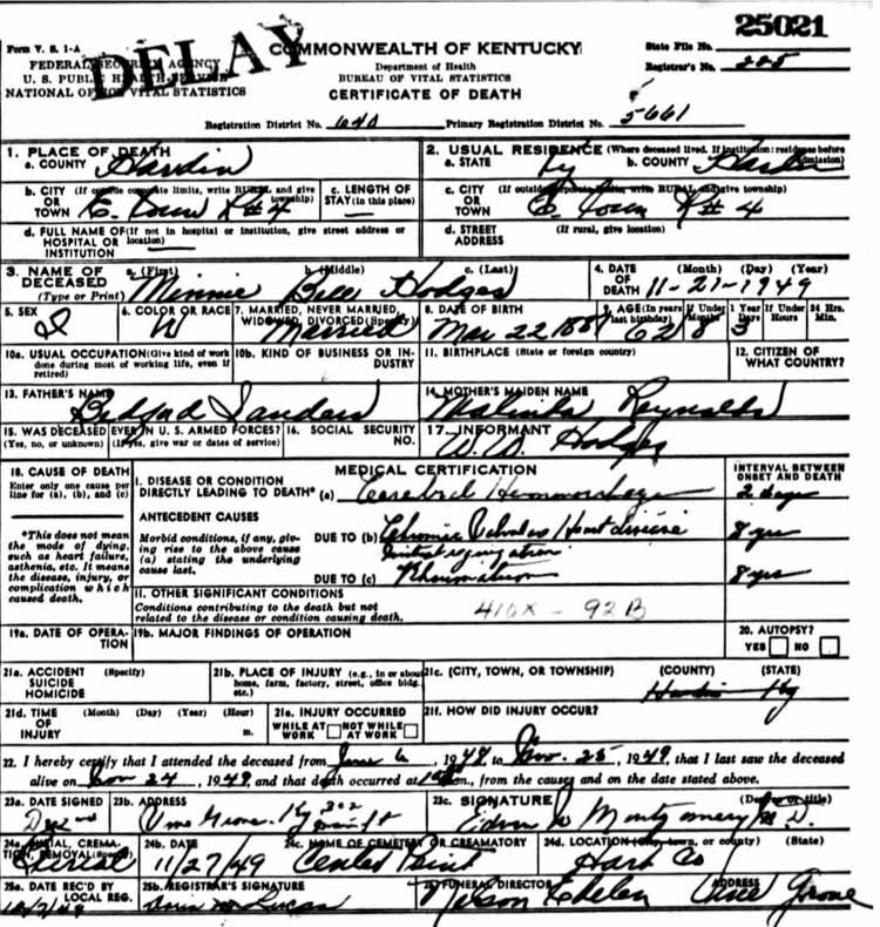 25021
DELAY
Form V. S. 1-A
COMMONWEALTH OF KENTUCKY
State File No.
FEDERAL SECURITY AGENCY
Department of Health
Registrar's No. 225
U. S. PUBLIC HEALTH SERVICE
BUREAU OF VITAL STATISTICS
NATIONAL OFFICE VITAL STATISTICS
CERTIFICATE OF DEATH
Registration District No. 640 Primary Registration District No. 5661
1. PLACE OF DEATH
2. USUAL RESIDENCE (Where deceased lived. If institution: residence before admission)
a. COUNTY Hardin
a. STATE Ky b. COUNTY Hardin
b. CITY (If outside corporate limits, write RURAL and give township) OR TOWN E. Town R#4
c. LENGTH OF STAY (in this place) —
c. CITY (If outside corporate limits, write RURAL and give township) OR TOWN E. Town R# 4
d. FULL NAME OF (If not in hospital or institution, give street address or location) HOSPITAL OR INSTITUTION —
d. STREET ADDRESS (If rural, give location)
3. NAME OF DECEASED (Type or Print) a. (First) Minnie b. (Middle) Bell c. (Last) Hodges
4. DATE OF DEATH (Month) (Day) (Year) 11-21-1949
5. SEX
6. COLOR OR RACE W
7. MARRIED, NEVER MARRIED, WIDOWED, DIVORCED (Specify) Married
8. DATE OF BIRTH Mar 22 1887
9. AGE (In years last birthday) 62 If Under 1 Year Months 8 Days 3 If Under 24 Hrs. Hours Min.
10a. USUAL OCCUPATION (Give kind of work done during most of working life, even if retired)
10b. KIND OF BUSINESS OR INDUSTRY
11. BIRTHPLACE (State or foreign country)
12. CITIZEN OF WHAT COUNTRY?
13. FATHER'S NAME Bedford Sanders
14. MOTHER'S MAIDEN NAME Malinda Reynolds
15. WAS DECEASED EVER IN U. S. ARMED FORCES? (Yes, no, or unknown) (If yes, give war or dates of service)
16. SOCIAL SECURITY NO.
17. INFORMANT W. W. Hodges
18. CAUSE OF DEATH
Enter only one cause per line for (a), (b), and (c)
MEDICAL CERTIFICATION
INTERVAL BETWEEN ONSET AND DEATH
I. DISEASE OR CONDITION DIRECTLY LEADING TO DEATH* (a) Cerebral Hemmorhage 2 days
*This does not mean the mode of dying, such as heart failure, asthenia, etc. It means the disease, injury, or complication which caused death.
ANTECEDENT CAUSES
Morbid conditions, if any, giving rise to the above cause (a) stating the underlying cause last.
DUE TO (b) Chronic Valvular Heart disease 8 yrs
mitral regurgitation
DUE TO (c) Rheumatism 8 yrs
II. OTHER SIGNIFICANT CONDITIONS
Conditions contributing to the death but not related to the disease or condition causing death.
410X - 92B
19a. DATE OF OPERATION
19b. MAJOR FINDINGS OF OPERATION
20. AUTOPSY? YES NO
21a. ACCIDENT SUICIDE HOMICIDE (Specify)
21b. PLACE OF INJURY (e.g., in or about home, farm, factory, street, office bldg. etc.)
21c. (CITY, TOWN, OR TOWNSHIP) (COUNTY) (STATE)
Hardin Ky
21d. TIME OF INJURY (Month) (Day) (Year) (Hour) m.
21e. INJURY OCCURRED WHILE AT WORK NOT WHILE AT WORK
21f. HOW DID INJURY OCCUR?
22. I hereby certify that I attended the deceased from June 6, 1949 to Nov. 25, 1949, that I last saw the deceased
alive on Nov 24, 1949, and that death occurred at m., from the causes and on the date stated above.
23a. DATE SIGNED Dec 2nd
23b. ADDRESS Vine Grove Ky 302
23c. SIGNATURE Edwin W Montgomery M D. (Degree or title)
24a. BURIAL, CREMATION, REMOVAL (Specify) Burial
24b. DATE 11/27/49
24c. NAME OF CEMETERY OR CREAMATORY Center Point
24d. LOCATION (City, town, or county) (State) Hart Co
25a. DATE REC'D BY LOCAL REG. 12/2/49
25b. REGISTRAR'S SIGNATURE Lucas
FUNERAL DIRECTOR Nelson ADDRESS Vine Grove